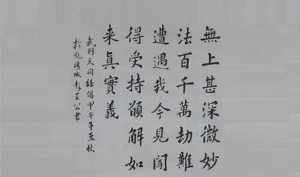 無上甚深微妙
法百千萬劫難
遭遇我今見聞
得受持願解如
来真實義
武則天 経偈甲午年 秋
書